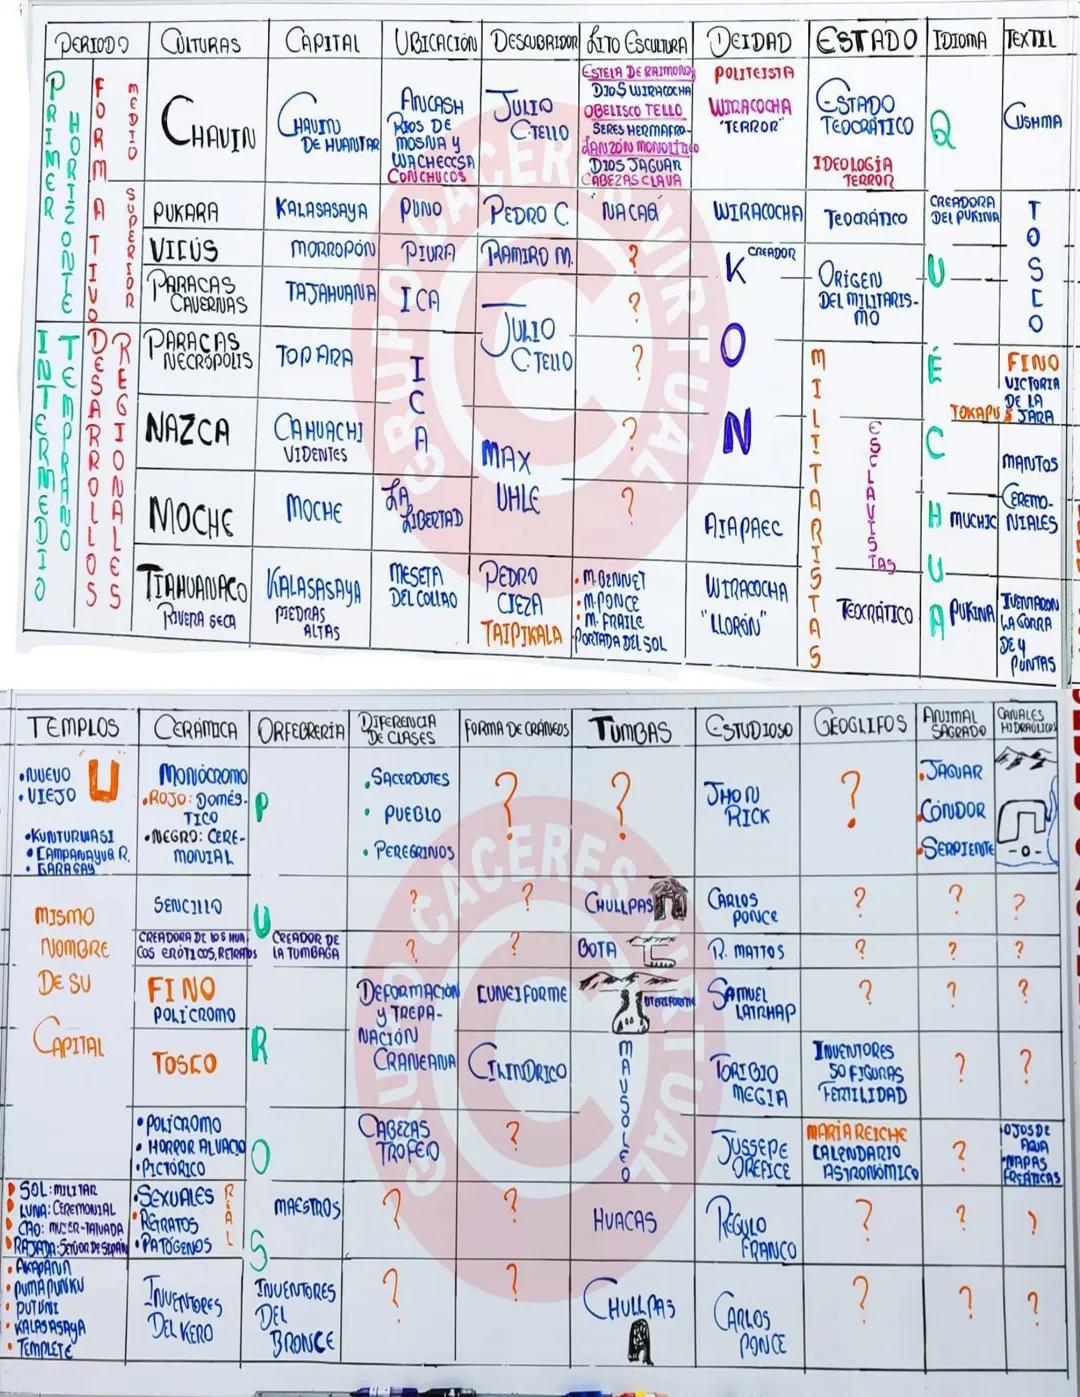 PERIODO
CULTURAS
CAPITAL
UBICACIÓN
DESCUBRIDOR
LITO ESCULTURA
DEIDAD
ESTADO
IDIOMA
TEXTIL
PRIMER
HORIZONTE
FORMATIVO
MEDIO
SUPERIOR
CHAVIN
CHAVIN
DE HUANTAR
ANCASH
RIOS DE
MOSNA Y
WACHECCSA
CONCHUCOS
JULIO
C.TELLO
ESTELA DE RAIMONDI
DIOS WIRACOCHA
OBELISCO TELLO
SERES HERMAFRO-
LANZÓN MONOLÍTICO
DIOS JAGUAR
CABEZAS CLAVA
POLITEISTA
WIRACOCHA
"TERROR"
ESTADO
TEOCRÁTICO
IDEOLOGÍA
TERROR
QUÉCHUA
CUSHMA
PUKARA
KALASASAYA
PUNO
PEDRO C.
"NACAQ"
WIRACOCHA
TEOCRÁTICO
CREADORA
DEL PUKINA
TOSCO
VICÚS
MORROPÓN
PIURA
RAMIRO M.
?
KON
CREADOR
ORIGEN
DEL MILITARIS-
MO
PARACAS
CAVERNAS
TAJAHUANA
ICA
?
JULIO
C.TELLO
INTERMEDIO
TEMPRANO
DESARROLLOS
REGIONALES
PARACAS
NECRÓPOLIS
TOPARA
ICA
?
MILITARISTAS
FINO
VICTORIA
DE LA
JARA
TOKAPUS
NAZCA
CAHUACHI
VIDENTES
MAX
UHLE
?
ESCLAVISTAS
MANTOS
CEREMO-
NIALES
MOCHE
MOCHE
LA
LIBERTAD
?
AIAPAEC
MUCHIC
TIAHUANACO
RIVERA SECA
KALASASAYA
PIEDRAS
ALTAS
MESETA
DEL COLLAO
PEDRO
CIEZA
TAIPIKALA
• M.BENNET
• M.PONCE
• M. FRAILE
PORTADA DEL SOL
WIRACOCHA
"LLORÓN"
TEOCRÁTICO
PUKINA
INVENTARON
LA GORRA
DE 4
PUNTAS
TEMPLOS
CERÁMICA
ORFEBRERÍA
DIFERENCIA
DE CLASES
FORMA DE CRÁNEOS
TUMBAS
ESTUDIOSO
GEOGLIFOS
ANIMAL
SAGRADO
CANALES
HIDRÁULICOS
• NUEVO
• VIEJO
U
• KUNTURWASI
• CAMPANAYUQ R.
• GARAGAY
MONÓCROMO
• ROJO: DOMÉS-
TICO
• NEGRO: CERE-
MONIAL
PUROS
• SACERDOTES
• PUEBLO
• PEREGRINOS
?
?
JHON
RICK
?
• JAGUAR
• CÓNDOR
• SERPIENTE
MISMO
NOMBRE
DE SU
CAPITAL
SENCILLO
?
?
CHULLPAS
CARLOS
PONCE
?
?
?
CREADORA DE LOS HUA-
COS ERÓTICOS, RETRATOS
CREADOR DE
LA TUMBAGA
?
?
BOTA
R. MATTOS
?
?
?
FINO
POLÍCROMO
DEFORMACIÓN
Y TREPA-
NACIÓN
CRANEANA
CUNEIFORME
UTERIFORME
SAMUEL
LATRHAP
?
?
?
TOSCO
CILINDRICO
MAUSOLEO
TORIBIO
MEGIA
INVENTORES
50 FIGURAS
FERTILIDAD
?
?
• POLÍCROMO
• HORROR AL VACÍO
• PICTÓRICO
CABEZAS
TROFEO
?
JUSSEPE
OREFICE
MARÍA REICHE
CALENDARIO
ASTRONÓMICO
?
• OJOS DE
AGUA
• NAPAS
FREÁTICAS
SOL: MILITAR
LUNA: CEREMONIAL
CAO: MUJER-TATUADA
RAJADA: SEÑOR DE SIPÁN
• SEXUALES
• RETRATOS
• PATÓGENOS
REAL
MAESTROS
?
?
HUACAS
RÉGULO
FRANCO
?
?
?
• AKAPANA
• PUMAPUNKU
• PUTUNI
• KALASASAYA
• TEMPLETE
INVENTORES
DEL KERO
INVENTORES
DEL
BRONCE
?
?
CHULLPAS
CARLOS
PONCE
?
?
?
GRUPO CACERES VIRTUAL
GRUPO CACERES VIRTUAL